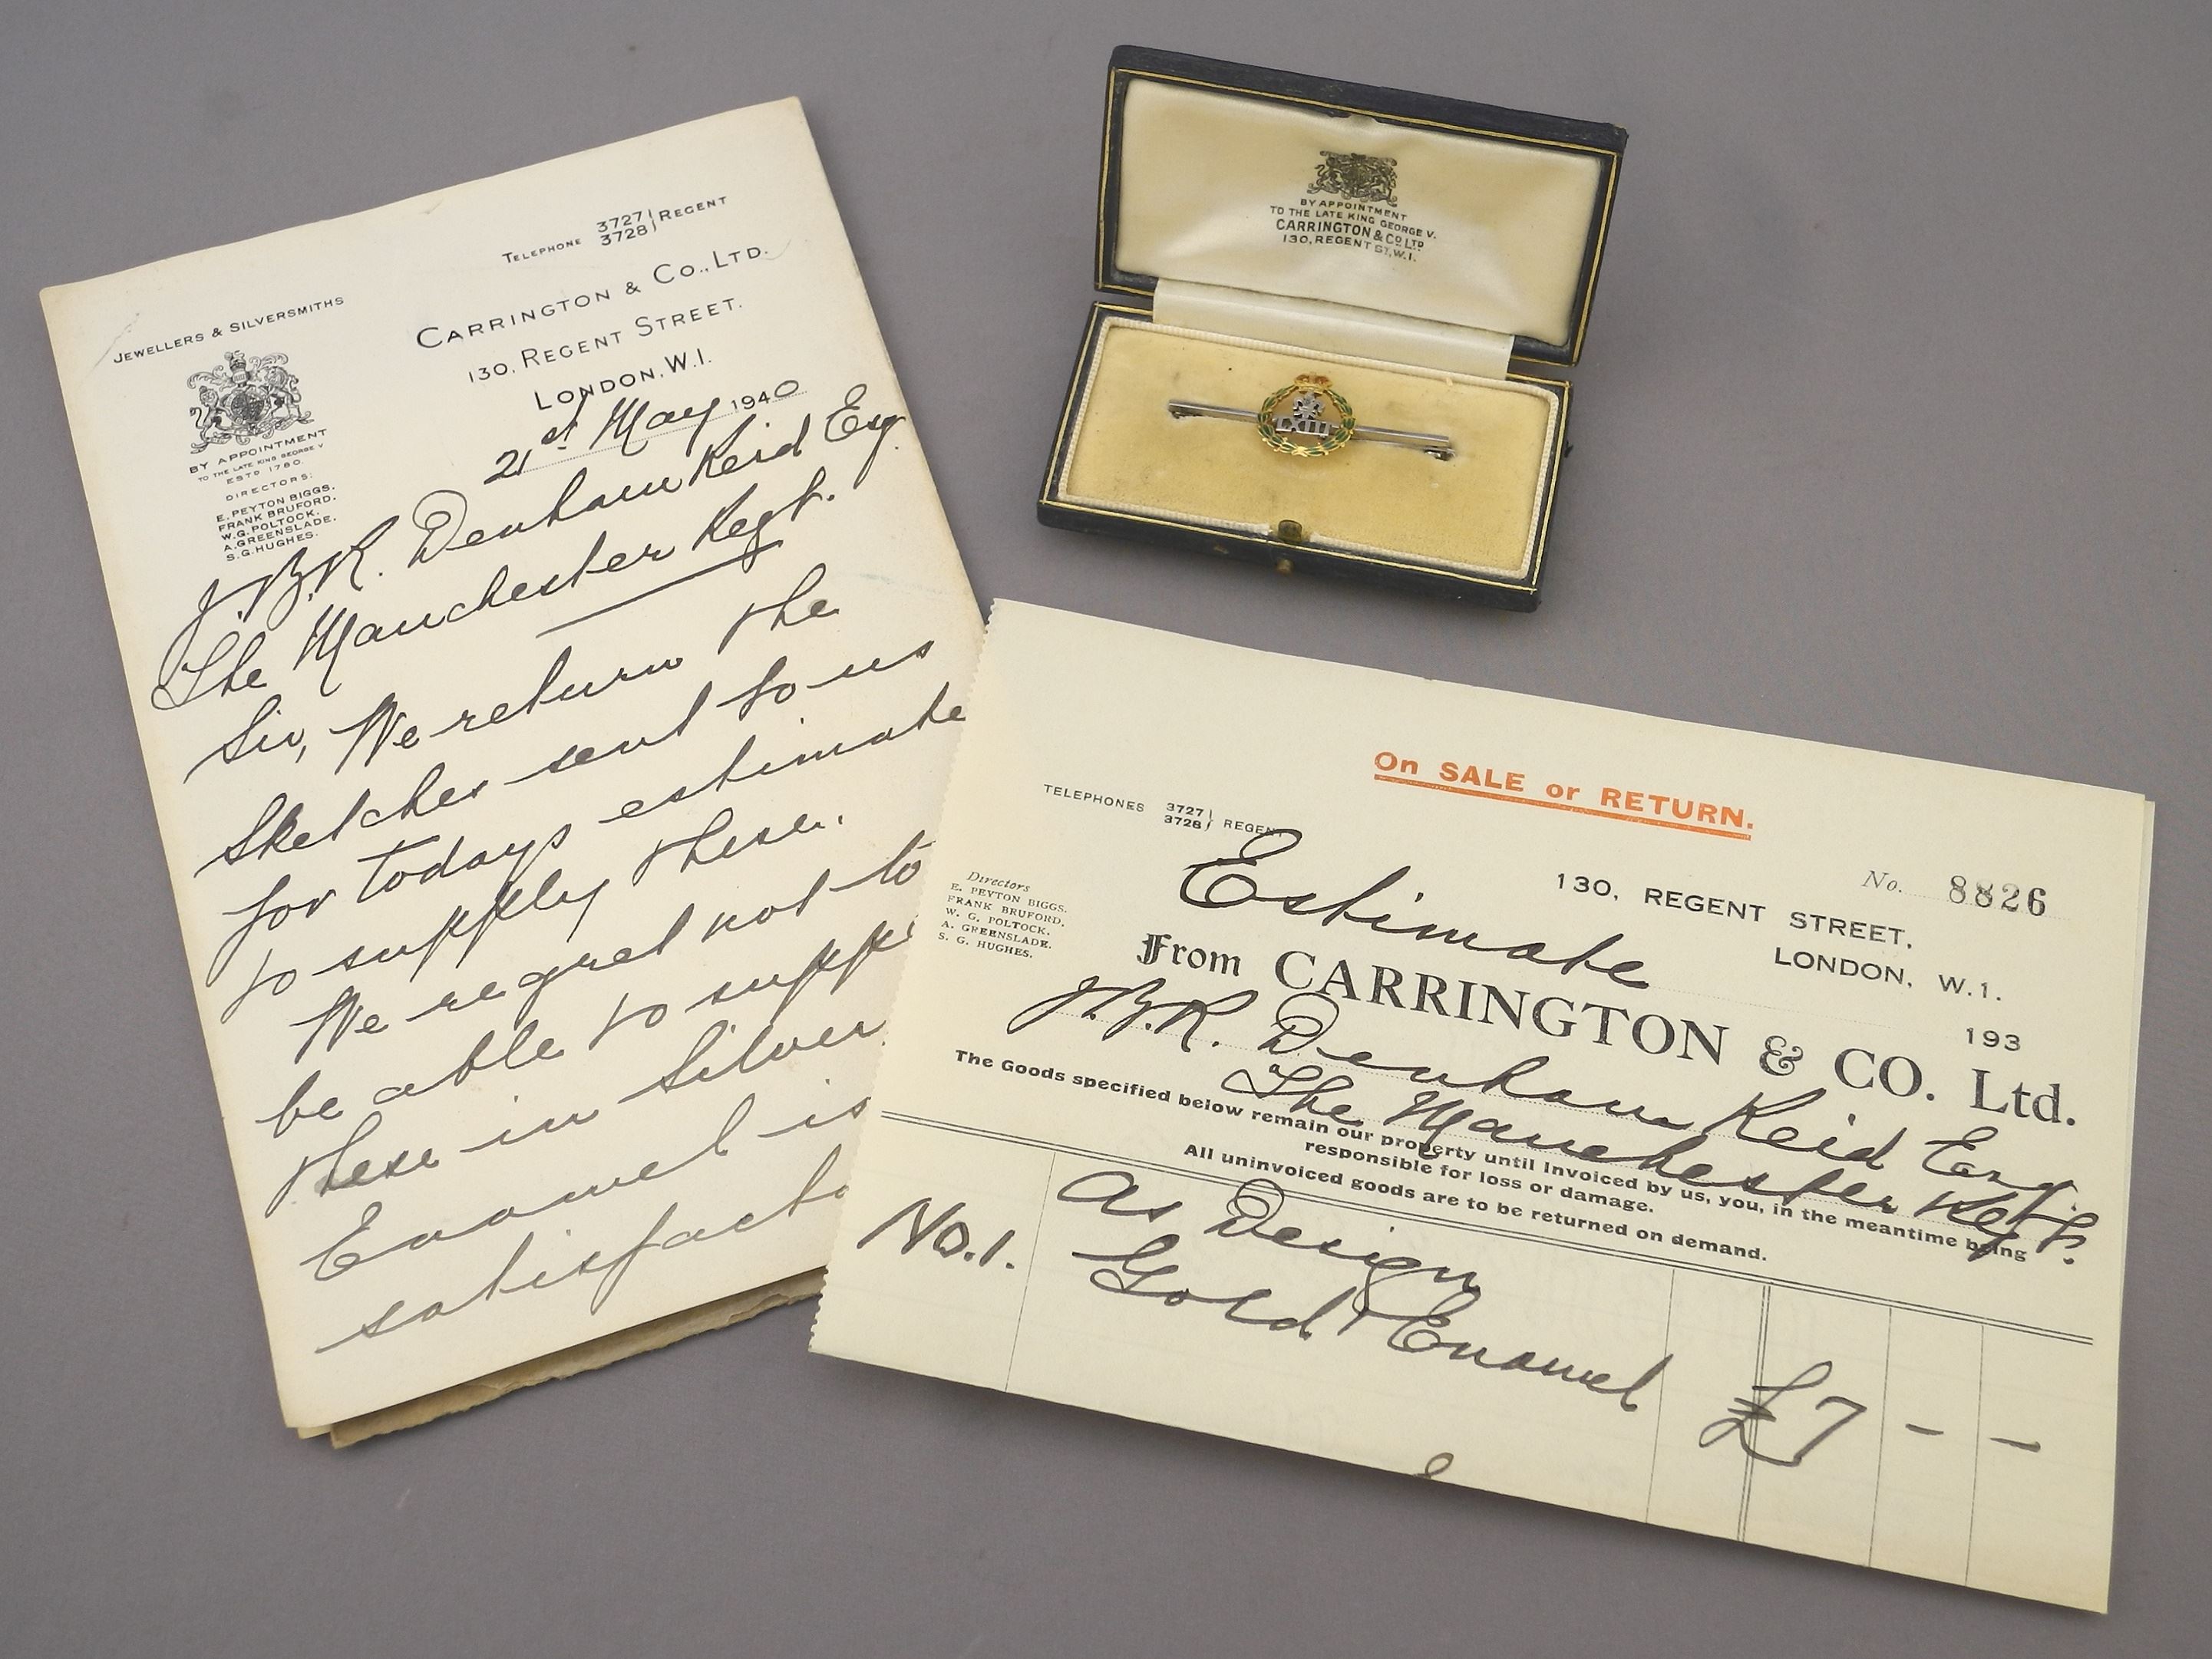 TELEPHONE 3727 3728 REGENT
CARRINGTON & CO., LTD.
130, REGENT STREET.
LONDON, W.1.
JEWELLERS & SILVERSMITHS
BY APPOINTMENT
TO THE LATE KING GEORGE V
ESTD 1780.
DIRECTORS:
E. PEYTON BIGGS.
FRANK BRUFORD.
W.G. POLTOCK.
A. GREENSLADE.
S. G. HUGHES.
21st May 1940
J.B.R. Denham Reid Esq.
The Manchester Regt.
Sir, We return the
Sketches sent to us
for todays estimate
to supply these.
We regret not to
be able to suppl
these in Silver
Enamel is
satisfacto
BY APPOINTMENT
TO THE LATE KING GEORGE V.
CARRINGTON & CO LTD
130, REGENT ST, W.1.
LXIII
On SALE or RETURN.
TELEPHONES 3727 3728 REGENT
No. 8826
Estimate
130, REGENT STREET.
LONDON, W.1.
Directors
E. PEYTON BIGGS.
FRANK BRUFORD.
W. G. POLTOCK.
A. GREENSLADE.
S. G. HUGHES.
193
From CARRINGTON & CO. Ltd.
J.B.R. Denham Reid Esq.
The Manchester Regt.
The Goods specified below remain our property until Invoiced by us, you, in the meantime being
responsible for loss or damage.
All uninvoiced goods are to be returned on demand.
No.1. As Design
Gold & Enamel £7 - -